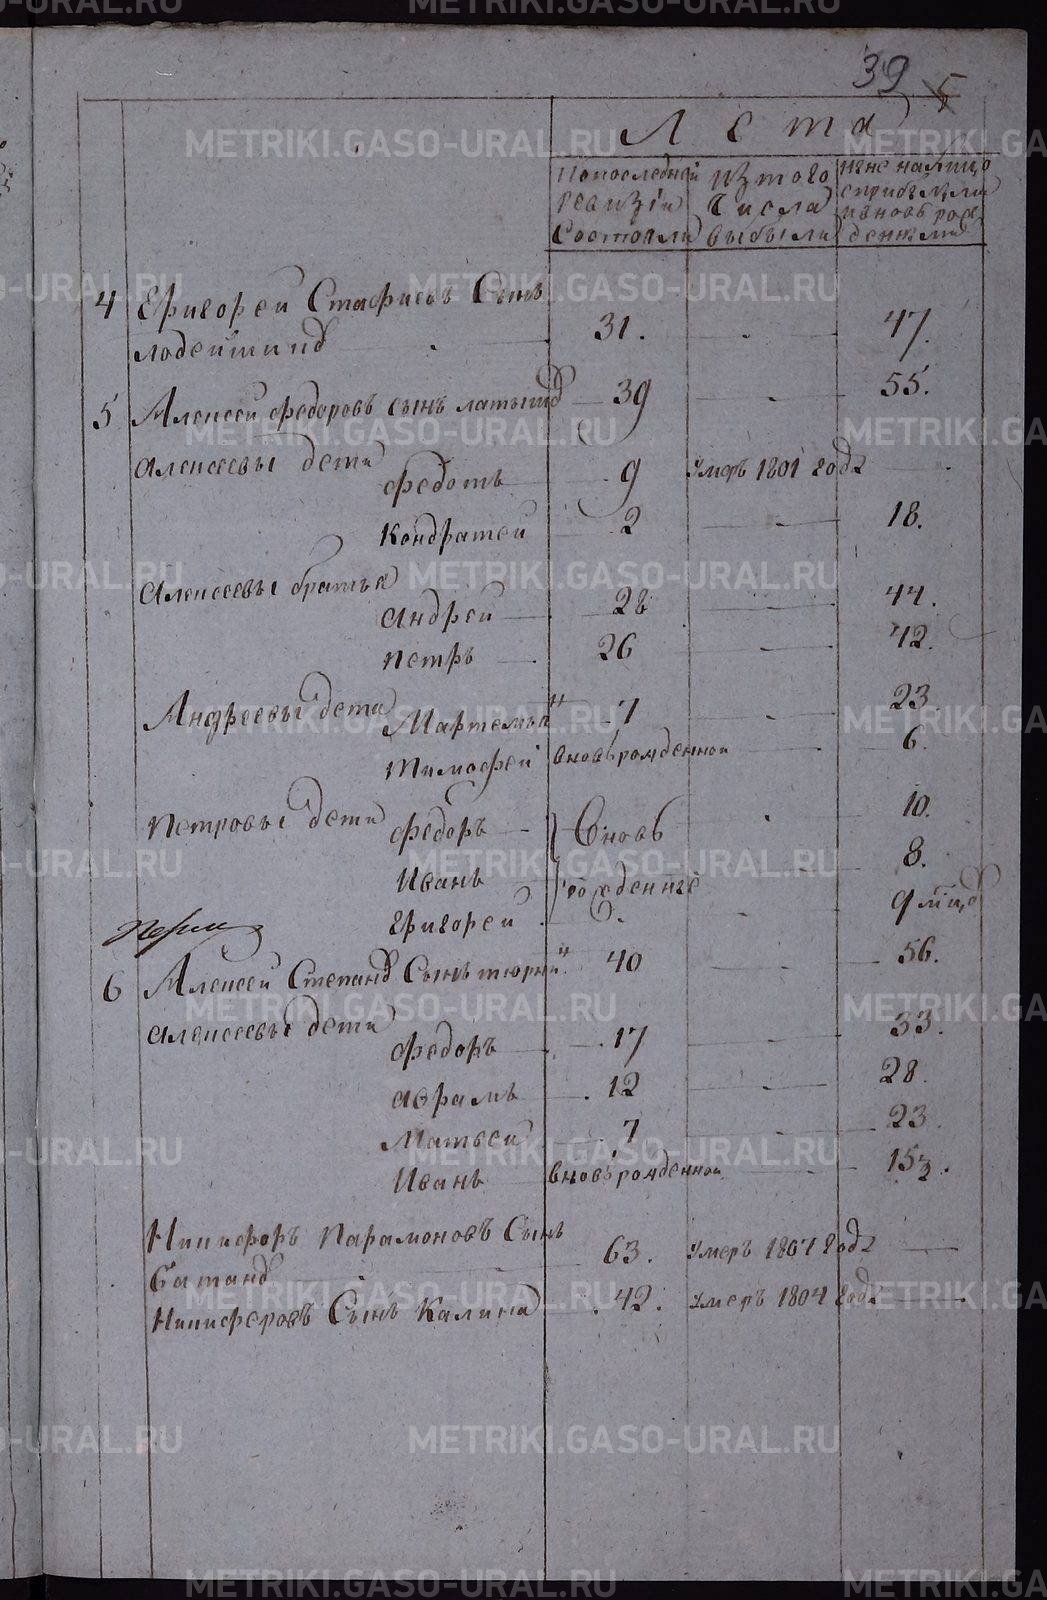 39 5
Лета
По последней ревизии состояли
Из того числа выбыли
Ныне налицо с прибылыми и вновь рожденными
4 Григорей Стафиевъ Сынъ
31. 47.
5 Алексей федоровъ сынъ латышд 39 55.
Алексеевы дети
федотъ 9 умеръ 1801 года
Кондратей 2 18.
Алексеевы братья
Андрей 28 44.
Петръ 26 42.
Андреевы дети Мартемья"н 7 23.
Тимофей вновьрожденной 6.
Петровы дети федоръ Вновь 10.
Иванъ рожденные 8.
Григорей 9 мсцд
6 Алексей Степанд Сынъ 40 56.
Алексеевы дети
федоръ 17 33.
Аврамъ 12 28.
Матвей 7 23.
Иванъ вновьрожденной 15½.
Никифоръ Парамоновъ Сынъ
63. умеръ 1807 года
Никифоровъ Сынъ Калина 42. умеръ 1804 года
METRIKI.GASO-URAL.RU